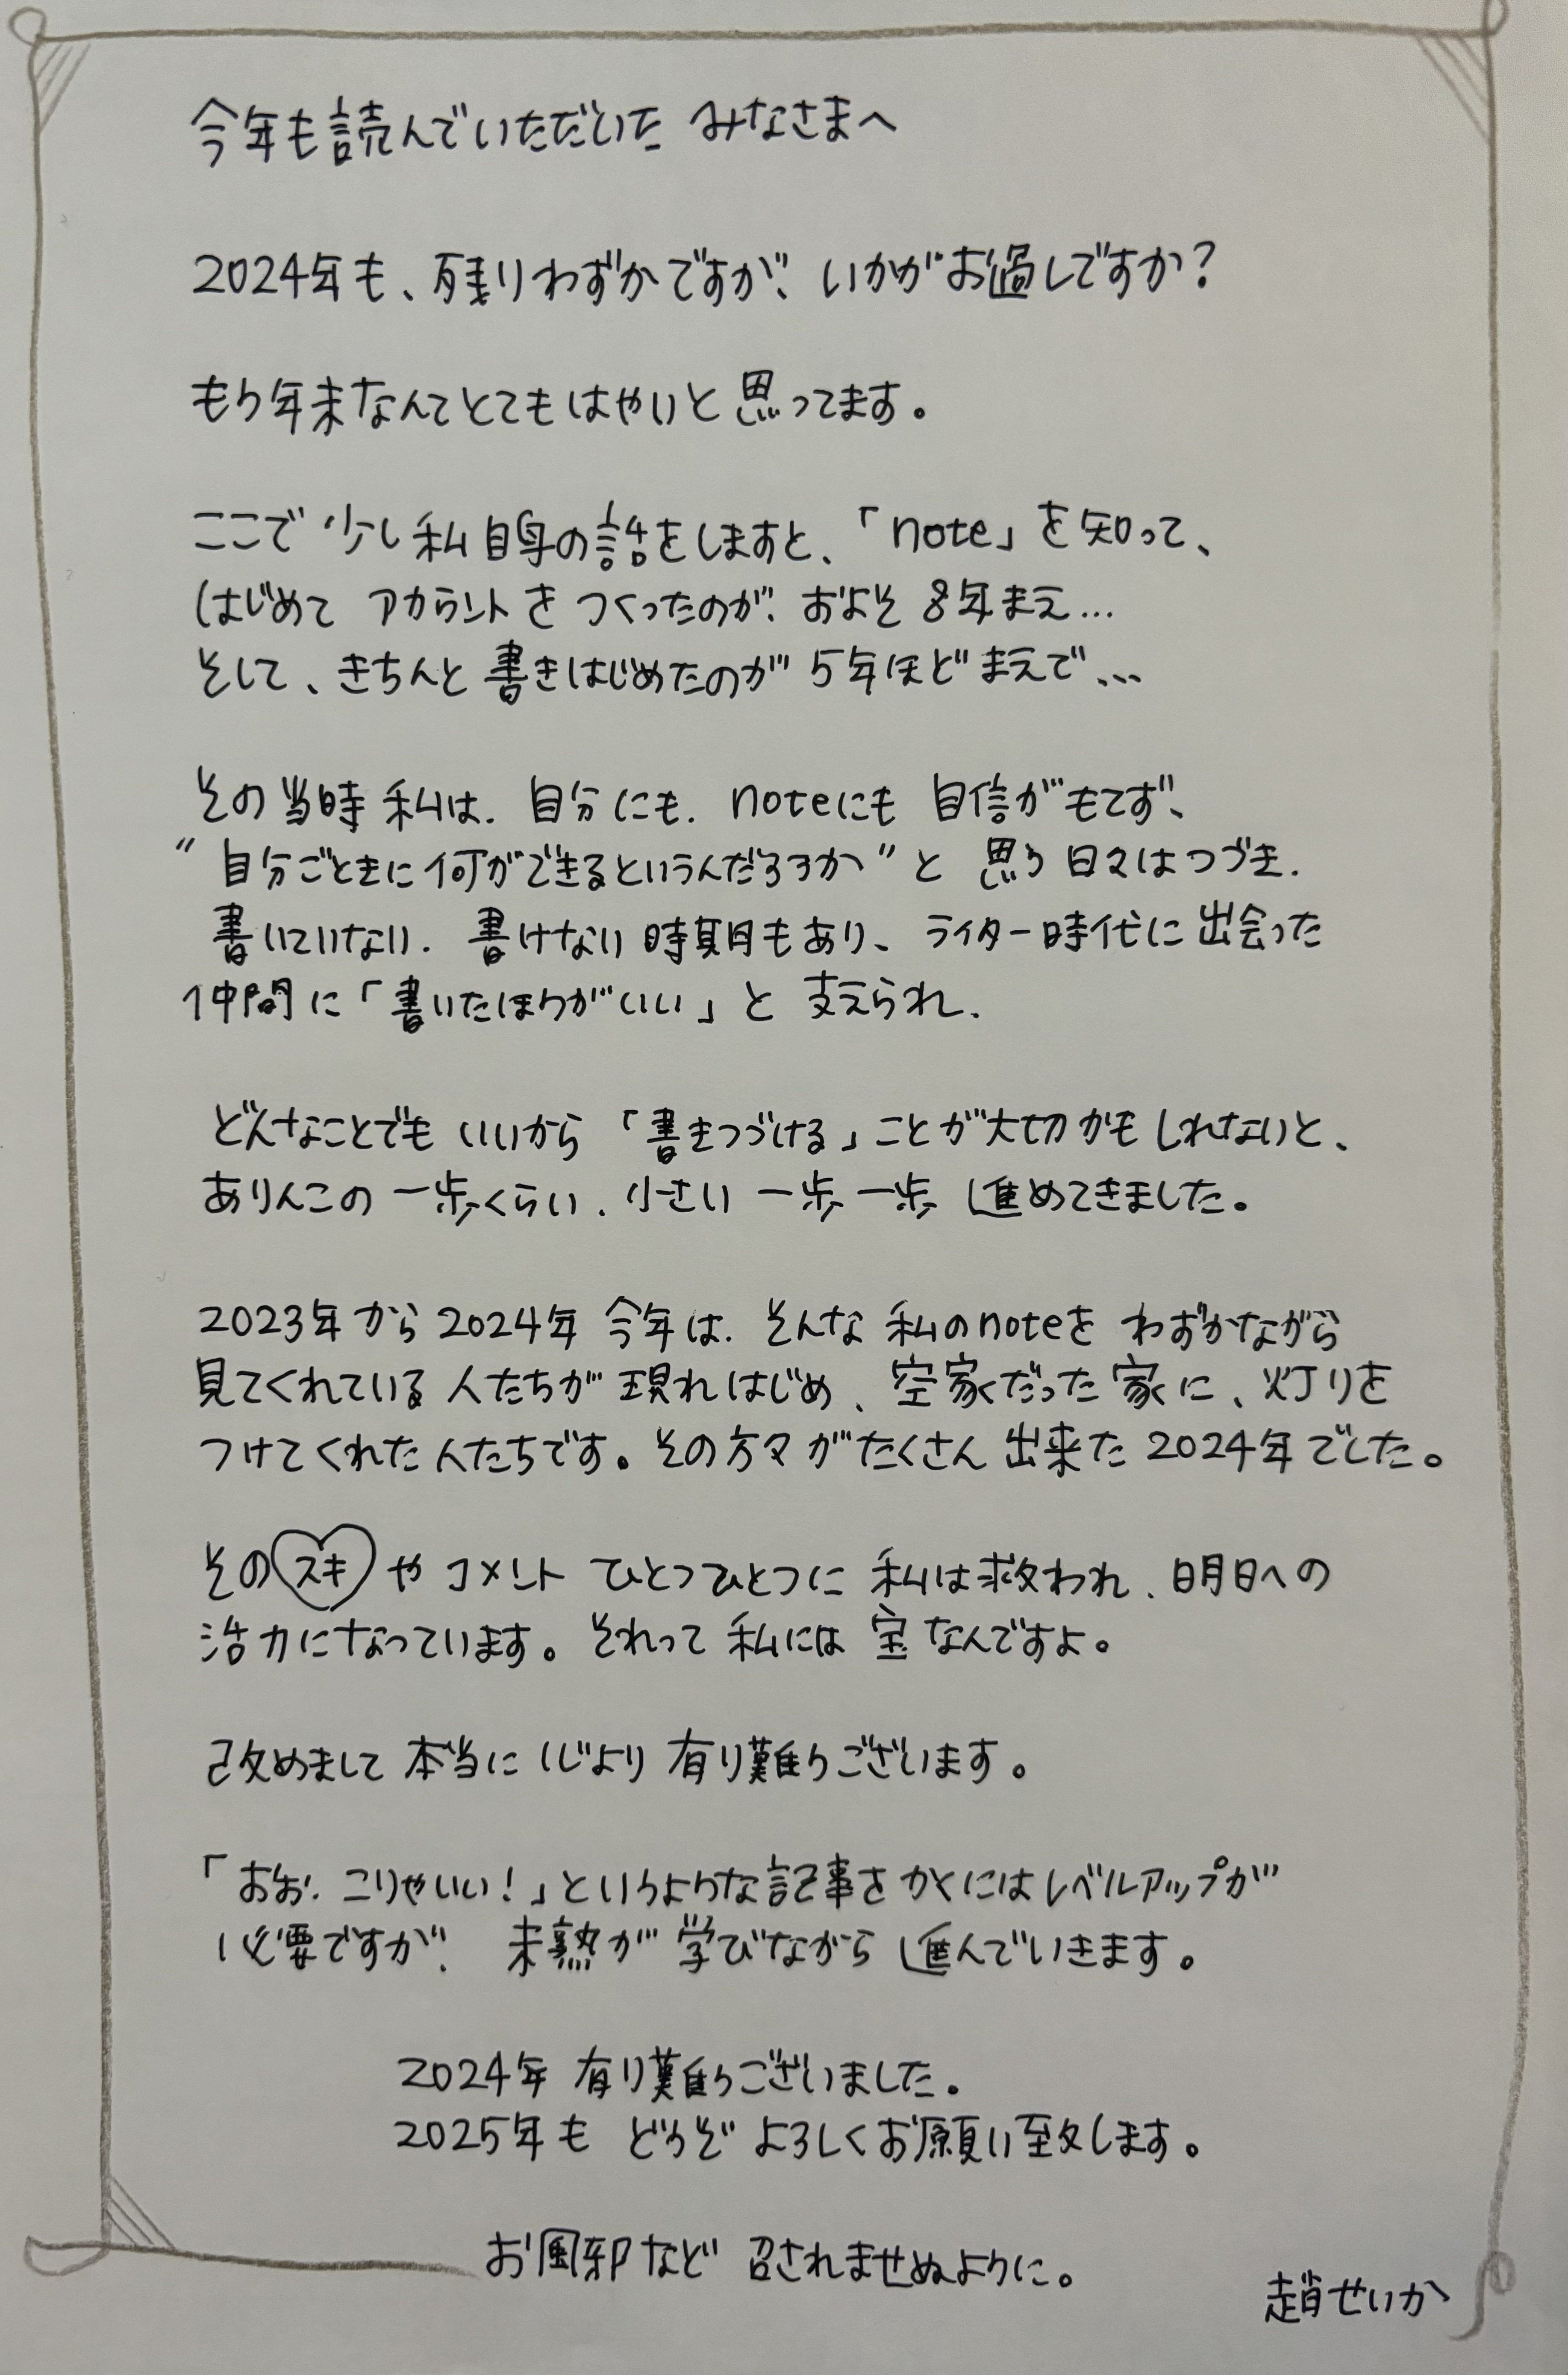 今年も読んでいただいた みなさまへ
2024年も、残りわずかですが、いかがお過しですか?
もう年末なんてとてもはやいと思ってます。
ここで少し私自身の話をしますと、「note」を知って、
はじめて アカウントを つくったのが、およそ 8年まえ…
そして、きちんと 書きはじめたのが 5年ほど まえで…
その当時 私は、自分にも、noteにも 自信がもてず、
“自分ごときに何ができるというんだろうか”と 思う 日々はつづき、
書いていない、書けない 時期もあり、ライター時代に 出会った
仲間に「書いたほうがいい」と 支えられ、
どんなことでも いいから 「書きつづける」ことが大切かもしれないと、
ありんこの 一歩くらい、小さい 一歩一歩 進めてきました。
2023年から2024年 今年は、そんな 私のnoteを わずかながら
見てくれている 人たちが 現れはじめ、空家だった家に、灯りを
つけてくれた人たちです。その方々がたくさん 出来た 2024年でした。
そのスキや コメント ひとつひとつに 私は救われ、明日への
活力になっています。それって 私には 宝なんですよ。
改めまして 本当に 心より 有り難うございます。
「おお、こりゃいい!」というような記事を かくにはレベルアップが
必要ですが、未熟が 学びながら 進んでいきます。
2024年 有り難うございました。
2025年も どうぞ よろしくお願い致します。
お風邪など 召されませぬように。
趙せいか